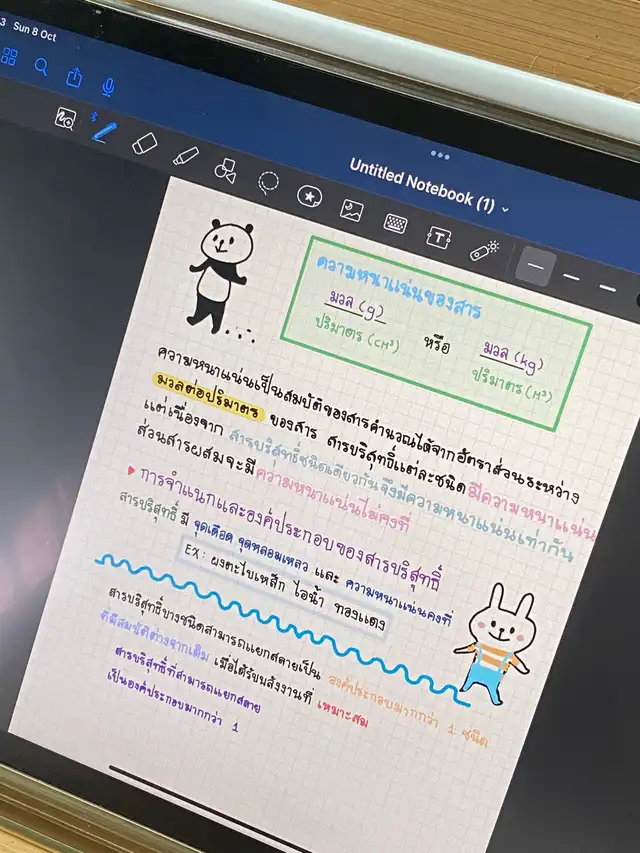 3 Sun 8 Oct
Untitled Notebook (1)
ความหนาแน่นของสาร
มวล (g)
ปริมาตร (cm³)
หรือ
มวล (kg)
ปริมาตร (m³)
ความหนาแน่นเป็นสมบัติของสารคำนวณได้จากอัตราส่วนระหว่าง
มวลต่อปริมาตร ของสาร สารบริสุทธิ์แต่ละชนิดมีความหนาแน่น
แต่เนื่องจาก สารบริสุทธิ์ชนิดเดียวกันจึงมีความหนาแน่นเท่ากัน
ส่วนสารผสมจะมีความหนาแน่นไม่คงที่
การจำแนกและองค์ประกอบของสารบริสุทธิ์
สารบริสุทธิ์ มี จุดเดือด จุดหลอมเหลว และ ความหนาแน่นคงที่
EX: ผงตะไบเหล็ก ไอน้ำ ทองแดง
สารบริสุทธิ์บางชนิดสามารถแยกสลายเป็น องค์ประกอบมากกว่า 1 ชนิด
ที่มีสมบัติต่างจากเดิม เมื่อได้รับพลังงานที่ เหมาะสม
สารบริสุทธิ์ที่สามารถแยกสลาย
เป็นองค์ประกอบมากกว่า 1